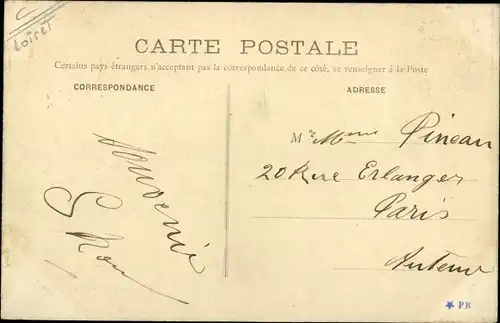 C
Loiret
CARTE POSTALE
Certains pays étrangers n'acceptant pas la correspondance de ce côté, se renseigner à la Poste
CORRESPONDANCE
ADRESSE
Souvenir
Mr Mme Pineau
20 Rue Erlanger
Paris
Auteuil
P B